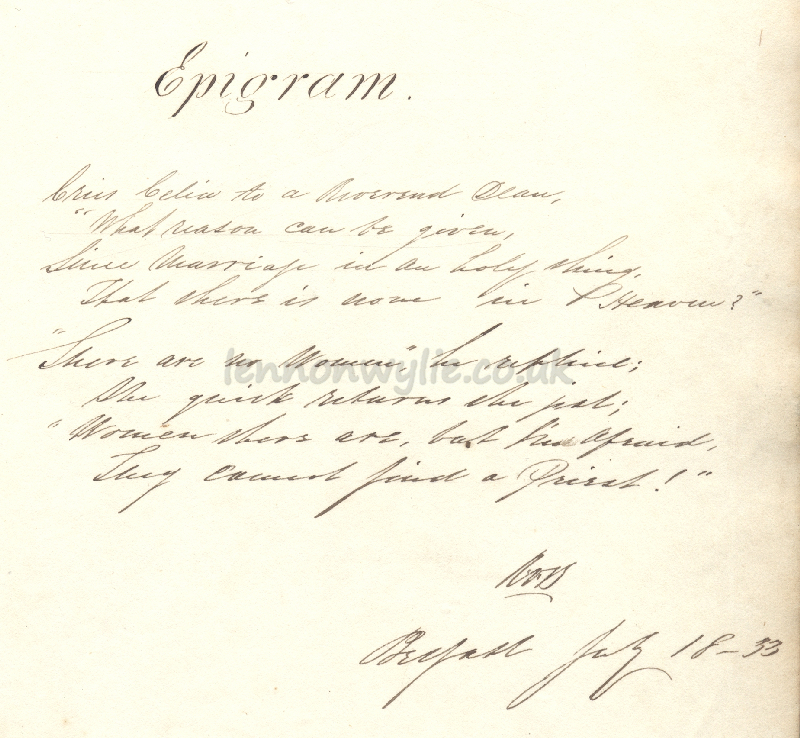 Epigram.
Cries Celia to a Reverend Dean,
"What reason can be given,
Since Marriage is an holy thing,
That there is none in Heaven?"
"There are no Women", he replied;
She quick returns the jest;
"Women there are, but I'm afraid,
They cannot find a Priest!"
lennonwylie.co.uk
Belfast July 18-33